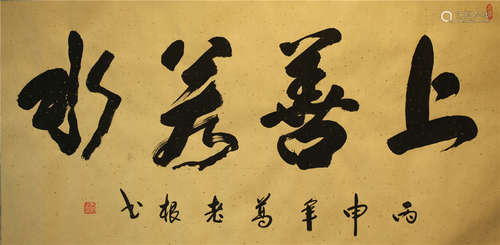 上善若水
丙申年葛老根书